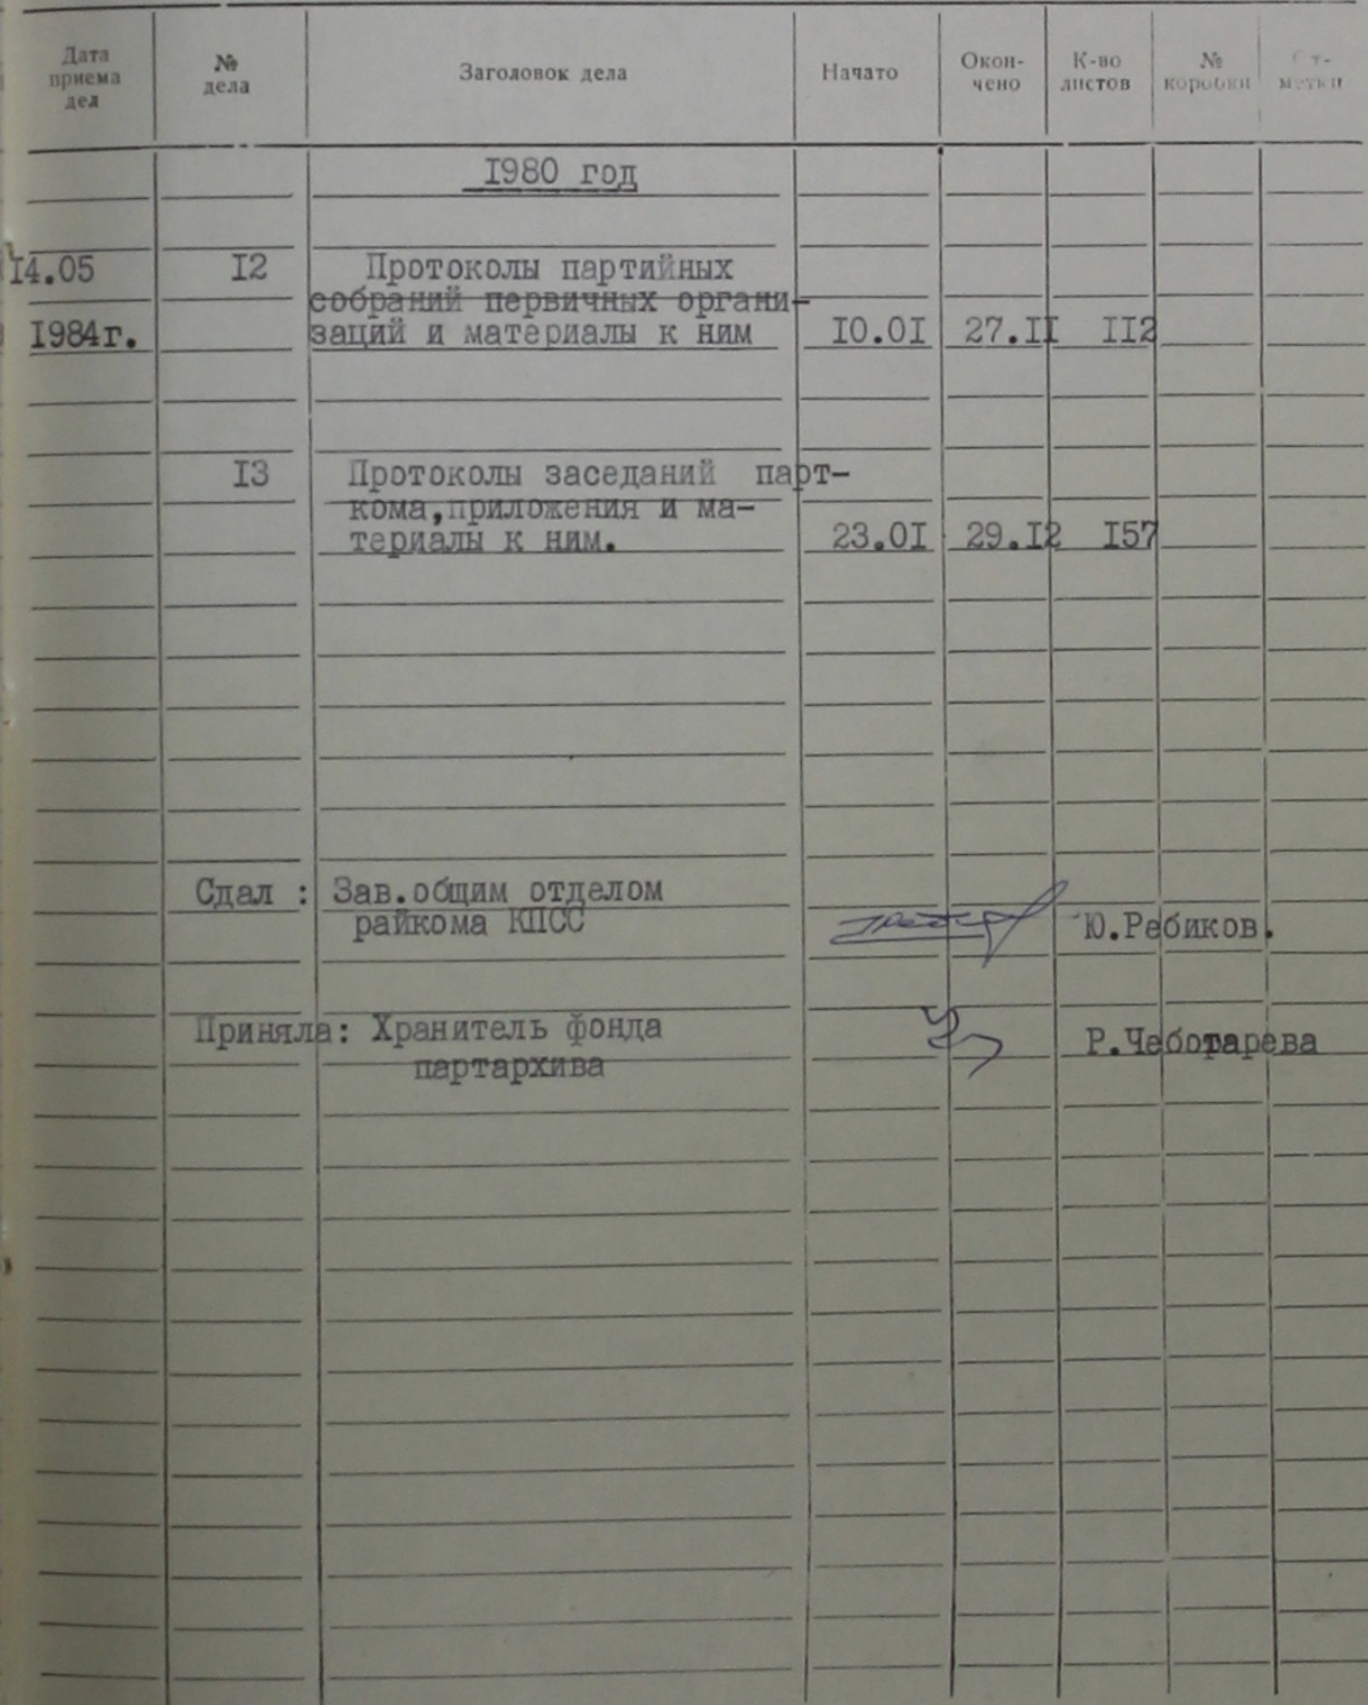 Дата приема дел № дела Заголовок дела Начато Окон-чено К-во листов № коробки От-метки
1980 год
14.05 12 Протоколы партийных
собраний первичных органи-
1984г. заций и материалы к ним 10.01 27.11 112
13 Протоколы заседаний парт-
кома,приложения и ма-
териалы к ним. 23.01 29.12 157
Сдал : Зав.общим отделом
райкома КПСС Ю.Ребиков.
Приняла: Хранитель фонда
Р.Чеботарева
партархива